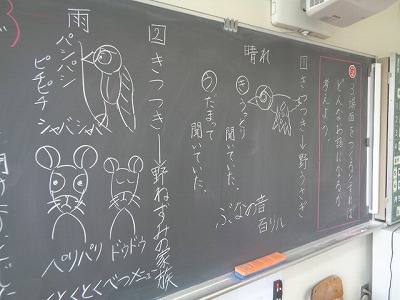 ③場面をつくるとすれば
どんなお話になるか
考えよう。
1 きつつき→野うさぎ
晴れ
き うっとり聞いていた。
う だまって聞いていた。
ぶなの音
百リル
2 きつつき→野ねずみの家族
雨
パシパシ
ピチピチ
シャバシャバ
ドゥドウ
パリパリ
とくとくべつメニュー